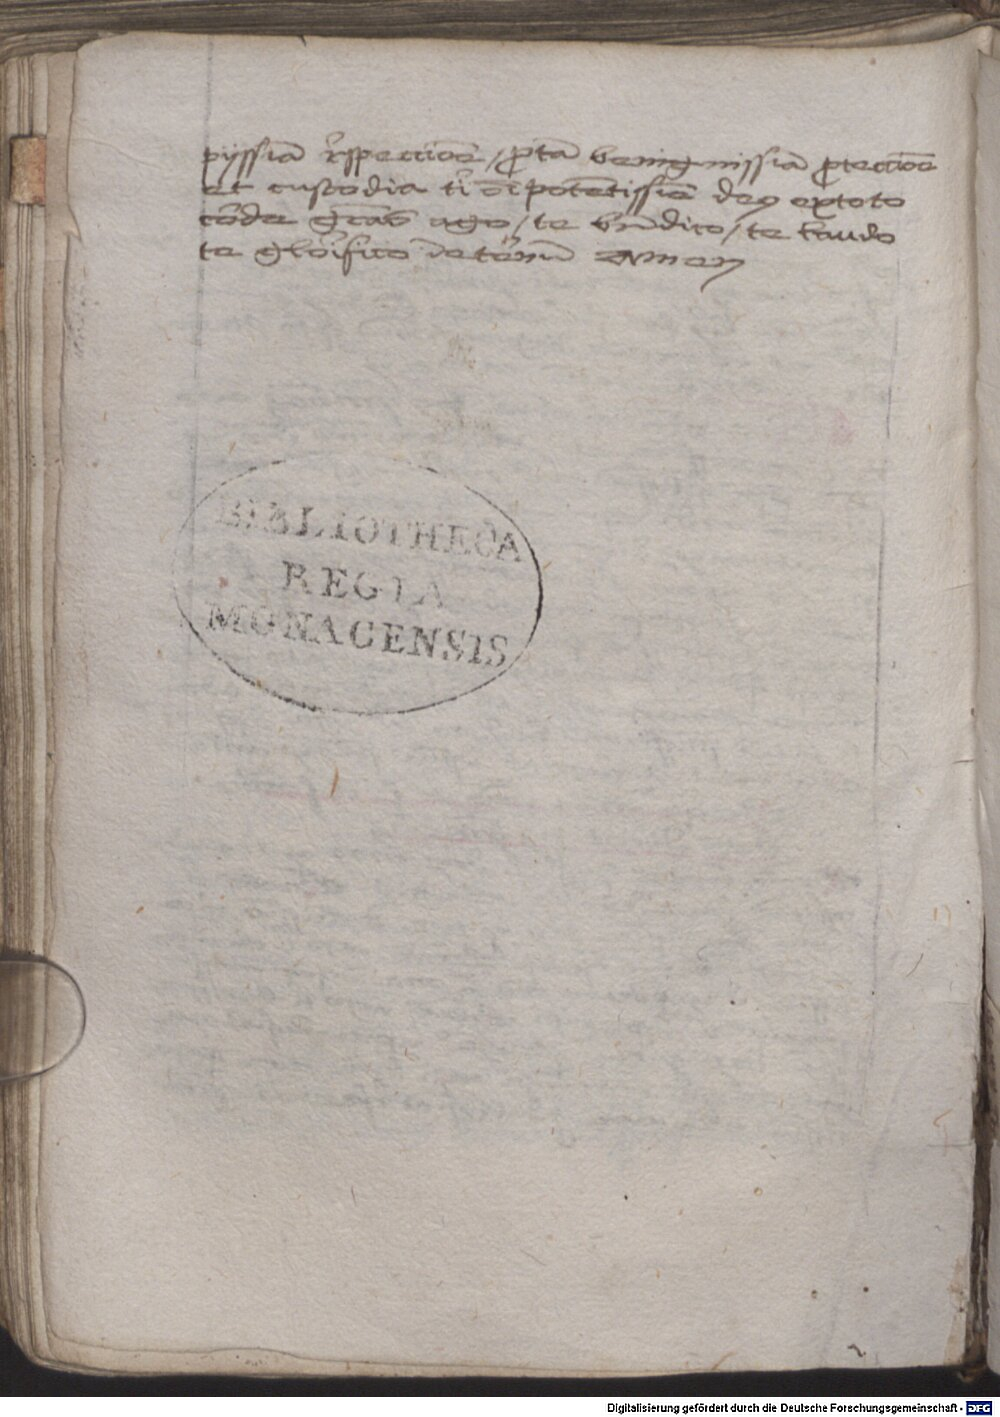 pijssiā r̄spectiōe / ꝓ tā benignissiā ꝓtectiōe
et custodia t̄ oīpotētissīe deꝰ ex toto
cōrde gr̄as ago / te bn̄dico / te laudo
te glōifico īetērnū Amen
BIBLIOTHECA
REGIA
MONACENSIS
Digitalisierung gefördert durch die Deutsche Forschungsgemeinschaft - DFG